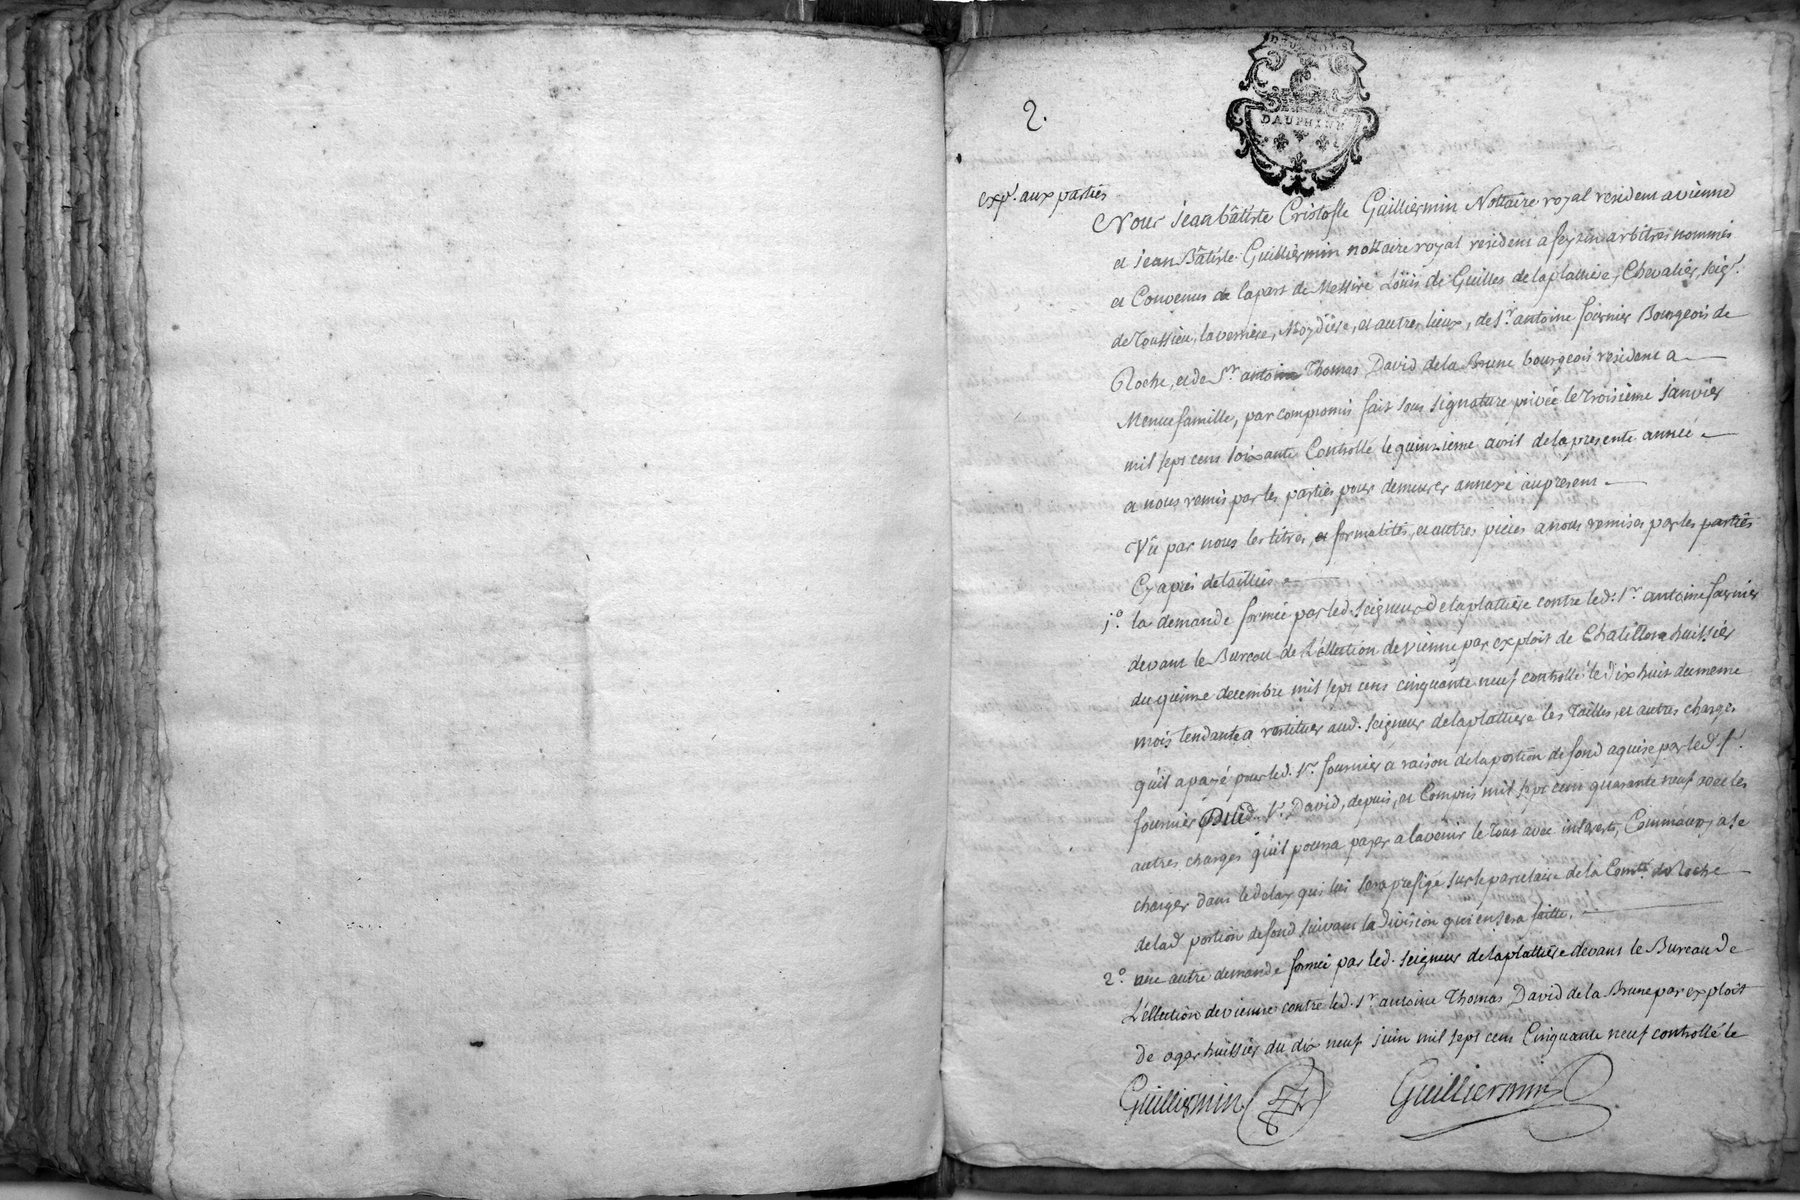 2.
DAUPHINE
exp.r aux parties
Nous Jean bâtiste Cristofle Guilliermin Nottaire royal resident a vienne
et jean Bâtiste Guilliermin nottaire royal resident a feyzin arbitres nommés
et Convenus de la part de Messire Loüis de Guilles de laplattiere, Chevalier, seig.r
de Toussieu, laverriere, Moydiere, et autres lieux, de s.r antoine fournier Bourgeois de
Roche, et de S.r Thomas David de la Brune bourgeois resident a
Menuefamille, par compromis fait sous signature privée le troisième janvier
mil sept cent soixante Controllé le quinzieme avril de la presente année
a nous remis par les parties pour demeurer annexé au present
Vû par nous les titres, et formalités, et autres pieces a nous remises par les parties
Cy après detaillées
1.° la demande formée par led. seigneur de laplattiere contre led. s.r antoine fournier
devant le Bureau de L'éllection de vienne par exploit de Chatillon huissier
du quinze decembre mil sept cent cinquante neuf controllé le dix huit du meme
mois tendante a restituer aud. seigneur de laplattiere les Tailles, et autres charges
qu'il a payé pour led. s.r fournier a raison de la portion de fond aquise par led. s.r
fournier Dud. s.r David, depuis, et Compris mil sept cent quarante neuf avec les
autres charges qu'il pourra payer a lavenir le tout avec interests, Comm'aussy a se
charger dans le delay qui lui sera prefigé sur le parcelaire de la Com.té de Roche
de lad. portion de fond suivant la division qui en sera faitte.
2.° une autre demande formée par led. seigneur de laplattiere devant le Bureau de
L'éllection de vienne contre led. s.r antoine Thomas David de la Brune par exploit
de agar huissier du dix neuf juin mil sept cent Cinquante neuf controllé le
Guilliermin Guilliermin